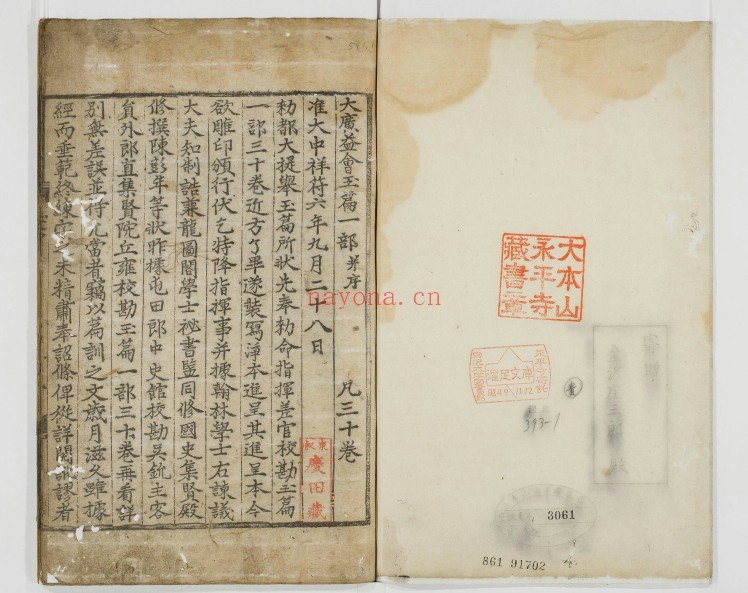 大本山
永平寺
藏書章
393-1
3061
861 91702
大廣益會玉篇一部 并序 凡三十卷
准大中祥符六年九月二十八日
勑都大提舉玉篇所狀先奉勑命指揮差官校勘玉篇
一部三十卷近方了畢遂裝寫淨本進呈其進呈本今
欲雕印頒行伏乞特降指揮事并據翰林學士右諫議
大夫知制誥兼龍圖閣學士祕書監同修國史集賢殿
修撰陳彭年等狀昨據屯田郎中史館校勘吳銳主客
員外郎直集賢院丘雍校勘玉篇一部三十卷再看詳
別無差誤並得允當者竊以篇訓之文歲月滋久雖據
經而垂範終練字之未精肅奉詔條俾從詳閱訛謬者
慶田藏
nayona.cn